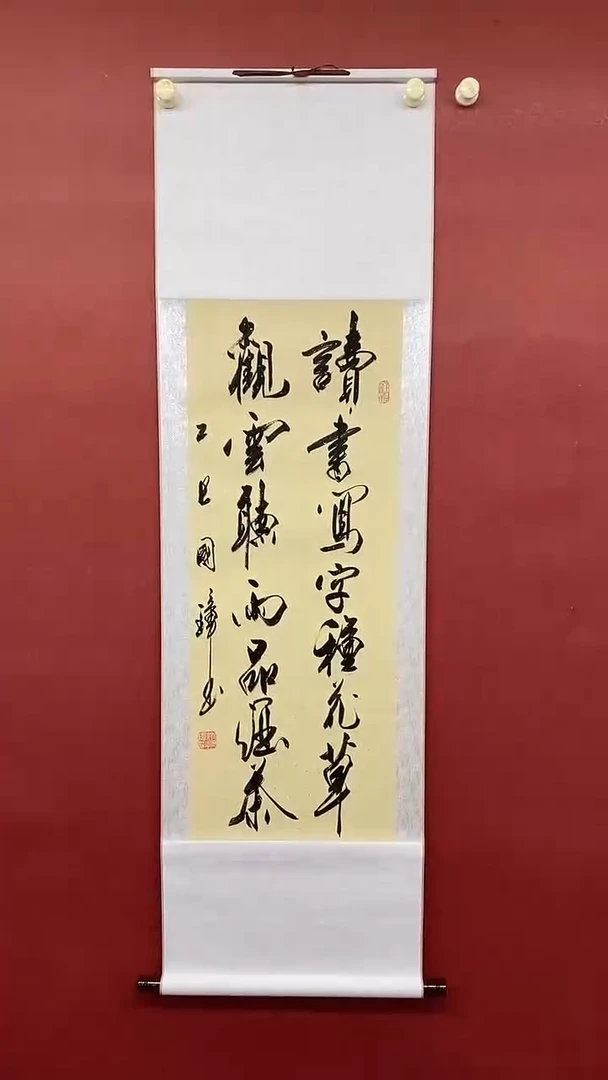 讀書寫字種花草
觀雲聽雨品茶
乙巳國璋書